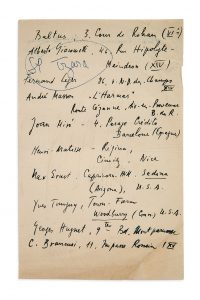 Balthus, 3. Cour de Rohan (VIe)
Alberto Giacometti, 46 Rue Hipolyte-
Maindron (XIV)
Fernand Léger 86, r. N.D. des Champs
André Masson "L'Harmas"
Route Cézanne, Aix-en-Provence
B. du R.
Joan Miró - 4, Pasage Crédito
Barcelone (Espagne)
Henri Matisse - Regina,
Cimiez, Nice
Max Ernst, Capricorn Hill. Sedona
(Arizona), U.S.A.
Yves Tanguy, Town Farm
Woodbury (Conn.) U.S.A.
Georges Hugnet, Bd. Montparnasse
C. Brancusi, 11, Impasse Ronsin (XV)